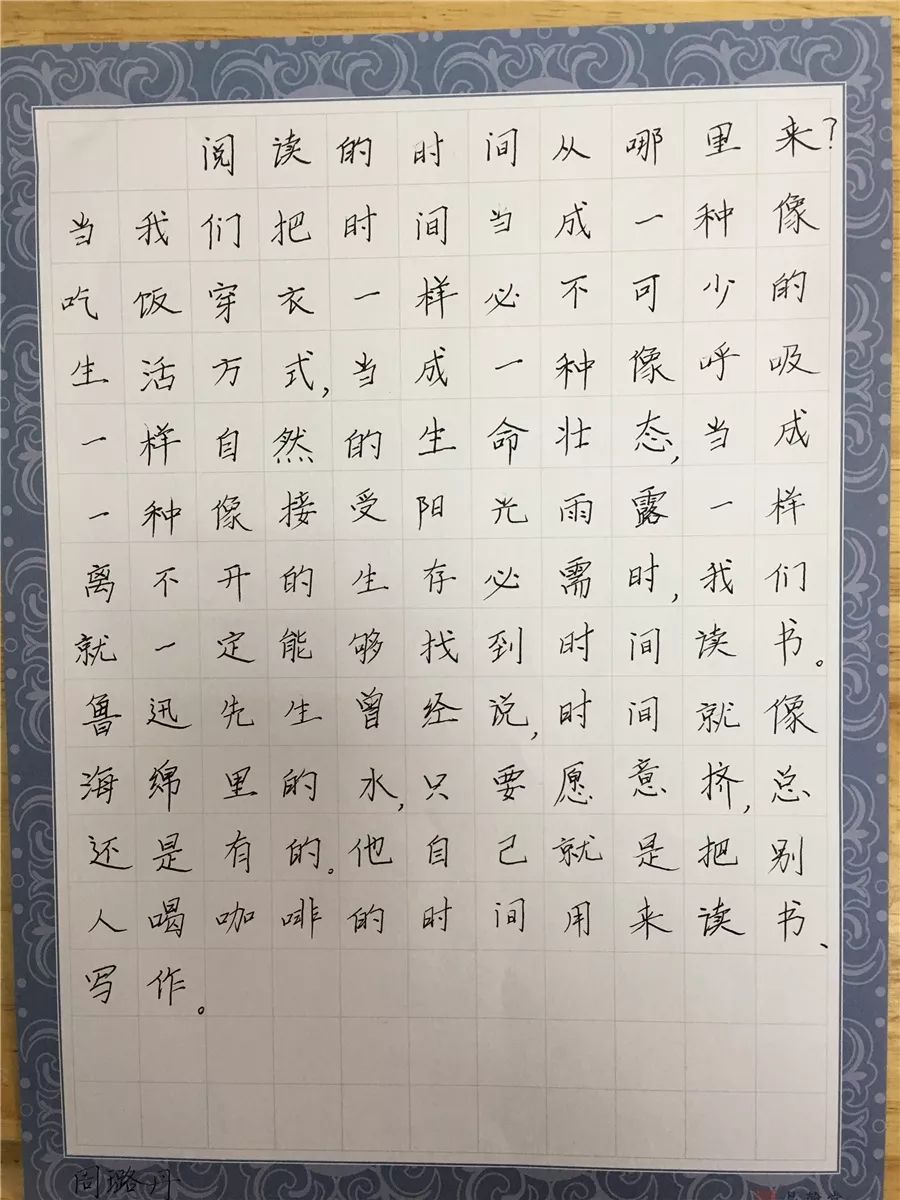 阅读的时间从哪里来?
当我们把时间当成一种像
吃饭穿衣一样必不可少的
生活方式,当成一种像呼吸
一样自然的生命壮态,当成
一种像接受阳光雨露一样
离不开的生存必需时,我们
就一定能够找到时间读书。
鲁迅先生曾经说,时间就像
海绵里的水,只要愿意挤,总
还是有的。他自己就是把别
人喝咖啡的时间用来读书、
写作。
周璐丹